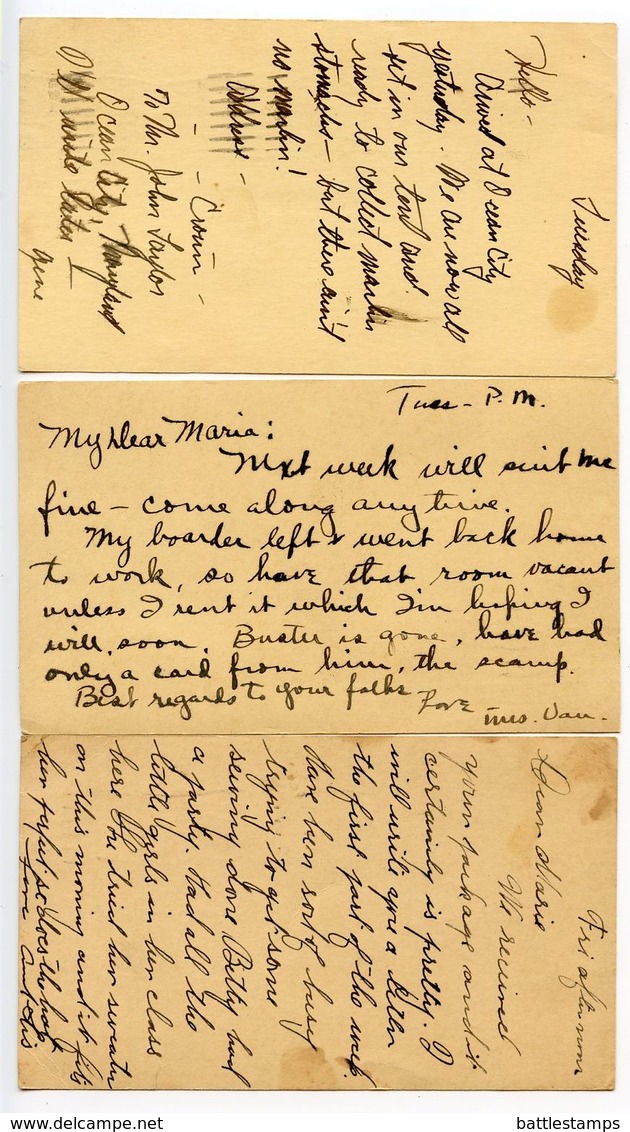 Tuesday
Hello -
Arived at Ocean City
yesterday. We are now all
set in our tent and
ready to collect marlin
stomachs - but there ain't
no marlin!
Address -
- Crown -
℅ Mr. John Taylor
Ocean City, Maryland
I'll write later -
Gene
Tues - P.M.
My Dear Maria:
Next week will suit me
fine - come along any time.
My boarder left & went back home
to work, so have that room vacant
unless I rent it which I'm hoping I
will, soon. Buster is gone, have had
only a card from him, the scamp.
Best regards to your folks
Love Mrs. Van.
Fri afternoon
Dear Marie
We received
your package and it
certainly is pretty. I
will write you a letter
the first part of the week.
Have been sort of busy
trying to get some
sewing done Betty had
a party. Had all the
little girls in her class
here She tried her sweater
on this morning and it fits
her perfect so does the hat
Love
delcampe.net
battlestamps